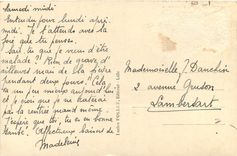 Samedi midi
Entendu pour lundi après-
midi. Je t'attends avec la
joie que tu penses.
Sais tu que je viens d'être
malade?! Rien de grave d'
ailleurs mais de la fièvre
pendant deux jours! Cela
va un peu mieux aujourd'hui
et je crois que je ne tarderai
pas la rentrée mardi même.
J'espère que toi, tu es en bonne
santé! Affectueux baisers de
Madeleine
Mademoiselle J. Danchin
2 avenue Gustave
Lambersart